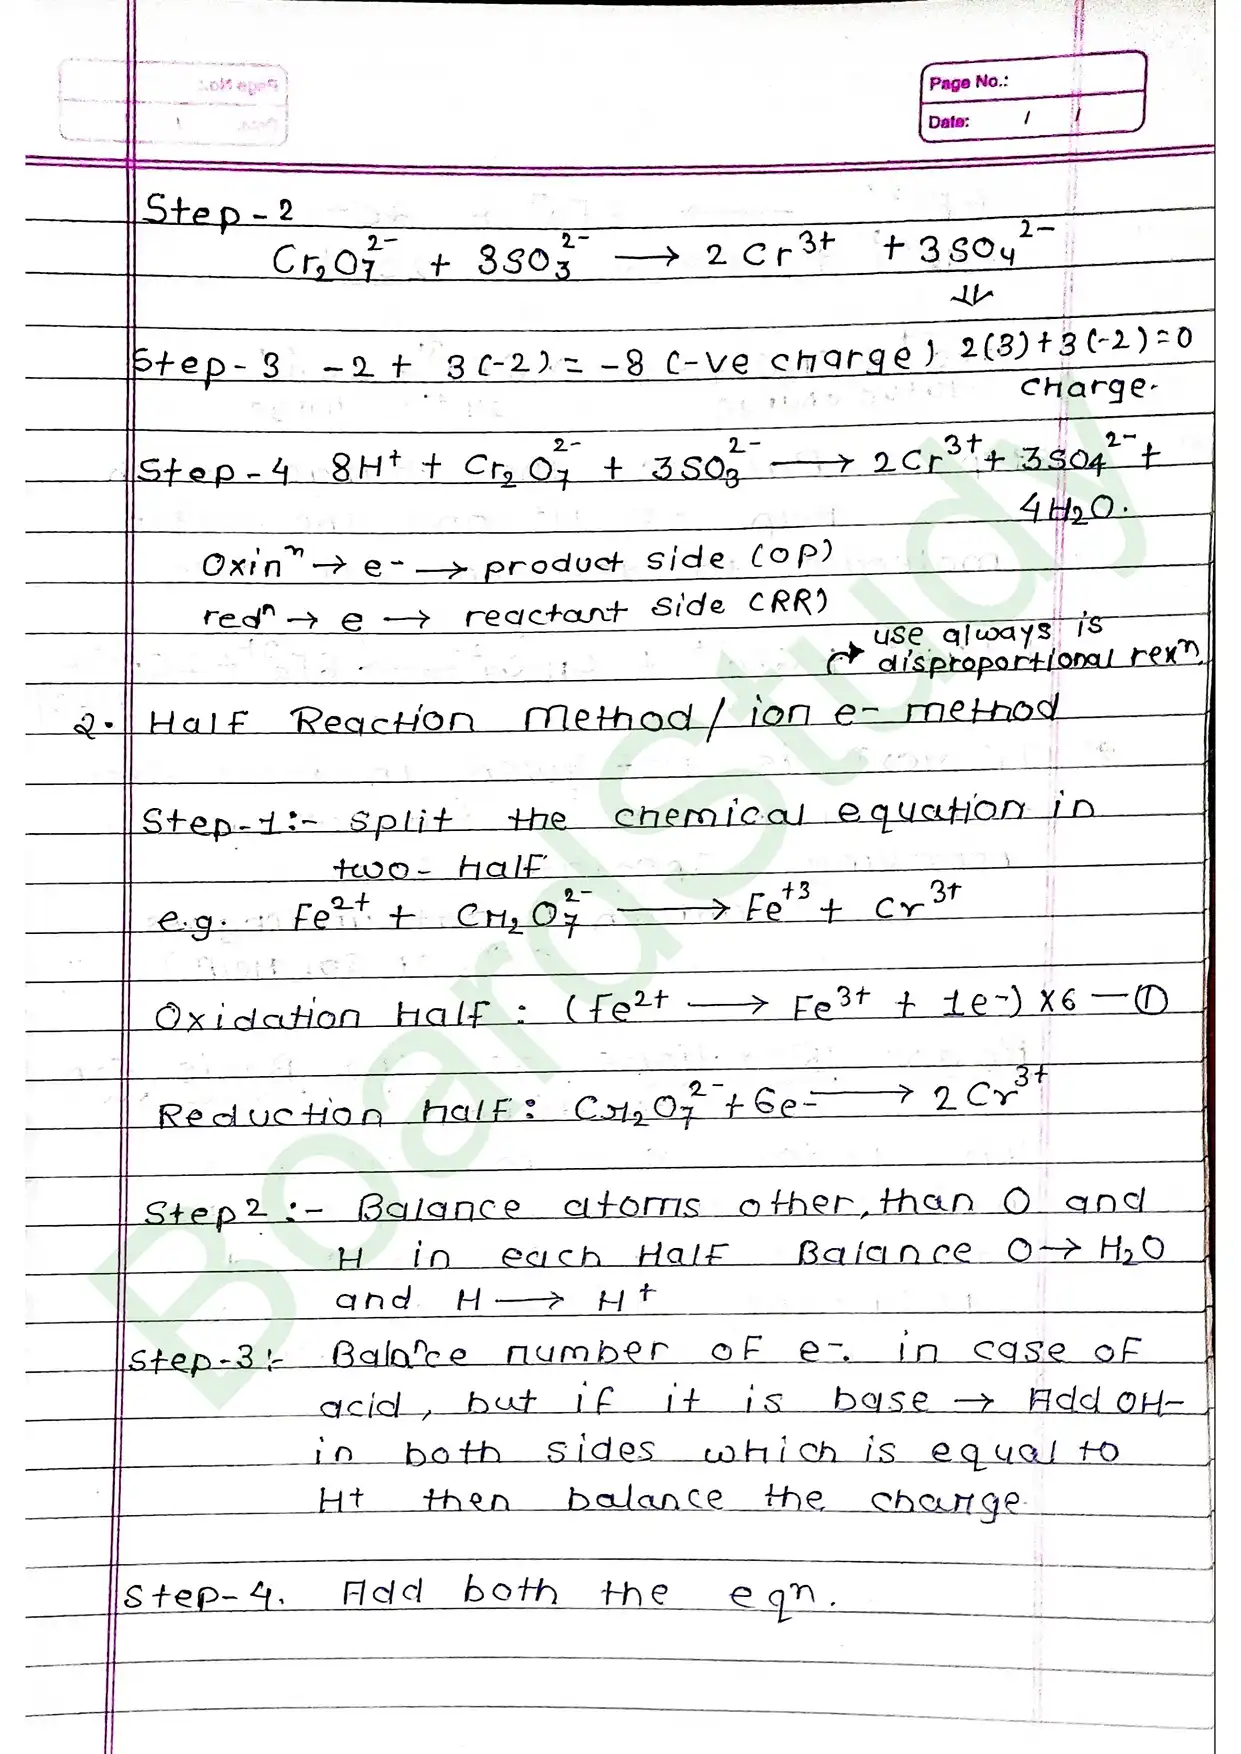 Page No.:
Date: / /
Step-2
Cr₂O₇²⁻ + 3SO₃²⁻ ⟶ 2Cr³⁺ + 3SO₄²⁻
⇓
Step-3 -2 + 3(-2) = -8 (-ve charge) 2(3)+3(-2)=0
charge.
Step-4 8H⁺ + Cr₂O₇²⁻ + 3SO₃²⁻ ⟶ 2Cr³⁺ + 3SO₄²⁻ +
4H₂O.
Oxinⁿ → e- → product side (OP)
redⁿ → e → reactant side (RR)
use always is
↱ disproportional rexⁿ.
2. Half Reaction method / ion e- method
Step-1:- split the chemical equation in
two-half
e.g. Fe²⁺ + Cr₂O₇²⁻ ⟶ Fe⁺³ + Cr³⁺
Oxidation half : (Fe²⁺ ⟶ Fe³⁺ + 1e-) x6 —①
Reduction half: Cr₂O₇²⁻ + 6e- ⟶ 2Cr³⁺
Step2 :- Balance atoms other, than O and
H in each Half Balance O → H₂O
and H ⟶ H⁺
Step-3:- Balance number of e-. in case of
acid, but if it is base → Add OH-
in both sides which is equal to
H⁺ then balance the charge.
Step-4. Add both the eqⁿ.
BoardStudy